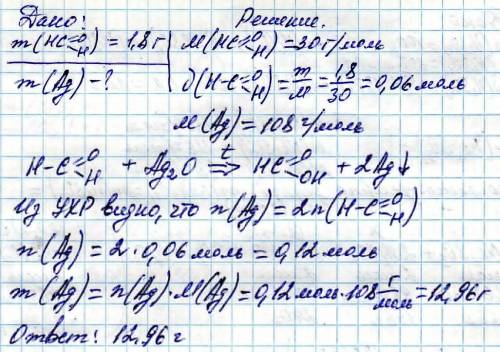 Дано: Решение.
m(HC=O H) = 1,8 г | M(HC=O H) = 30 г/моль
m(Ag) - ? ϑ(H-C=O H) = m/M = 1,8/30 = 0,06 моль
M(Ag) = 108 г/моль
H-C=O H + Ag₂O t⇒ HC=O OH + 2Ag↓
Из УХР видно, что n(Ag) = 2n(H-C=O H)
n(Ag) = 2·0,06 моль = 0,12 моль
m(Ag) = n(Ag)·M(Ag) = 0,12 моль·108 г/моль = 12,96 г
Ответ: 12,96 г